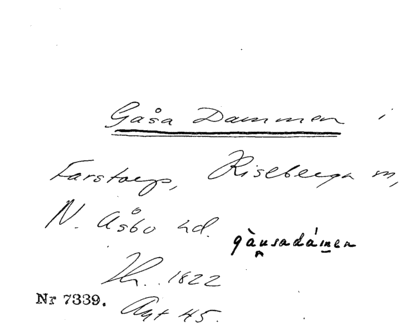 Gåsa Dammen i
Farstorp, Riseberga sn,
N. Åsbo hd. gàusadámen
Th. 1822
Nr 7339. Akt 45.